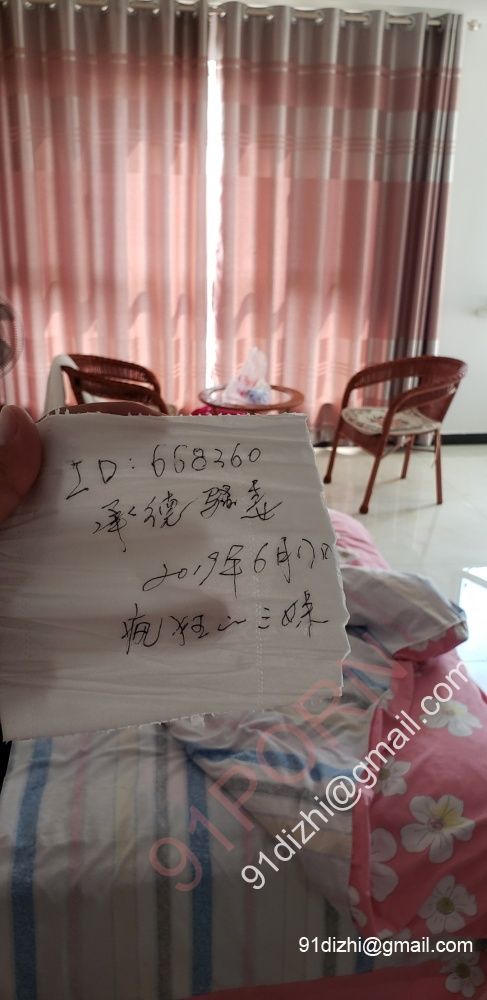 ID：668360
承德骚妻
2019年6月17日
疯狂一三妹
91PORN
91dizhi@gmail.com
91dizhi@gmail.com